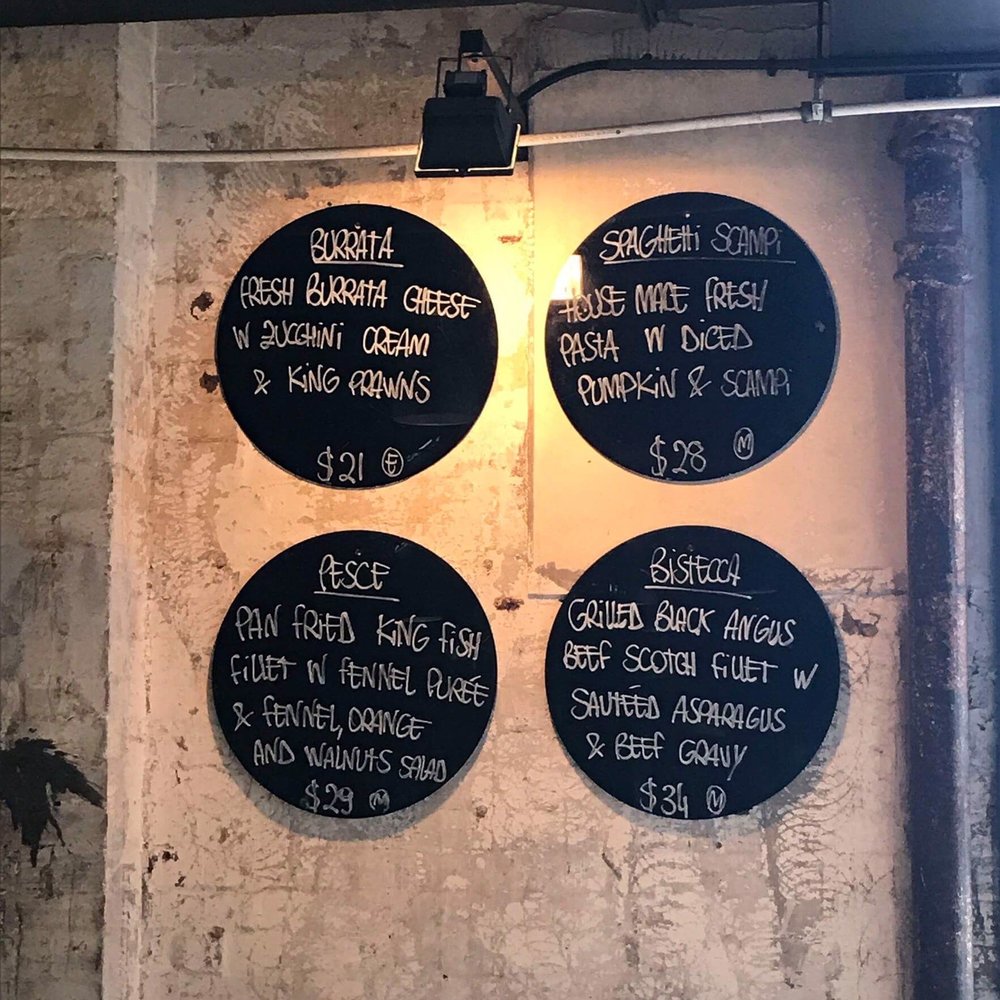 BURRATA
FRESH BURRATA CHEESE
W ZUCCHINI CREAM
& KING PRAWNS
$21 E
SPAGHETTI SCAMPI
HOUSE MADE FRESH
PASTA W DICED
PUMPKIN & SCAMPI
$28 M
PESCE
PAN FRIED KING FISH
FILLET W FENNEL PURÉE
& FENNEL, ORANGE
AND WALNUTS SALAD
$29 M
BISTECCA
GRILLED BLACK ANGUS
BEEF SCOTCH FILLET W
SAUTÉED ASPARAGUS
& BEEF GRAVY
$34 M